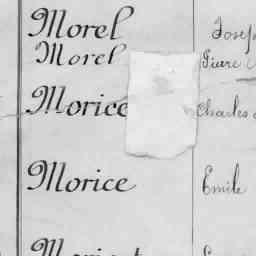 Morel Joseph
Morel Pierre
Morice Charles
Morice Emile